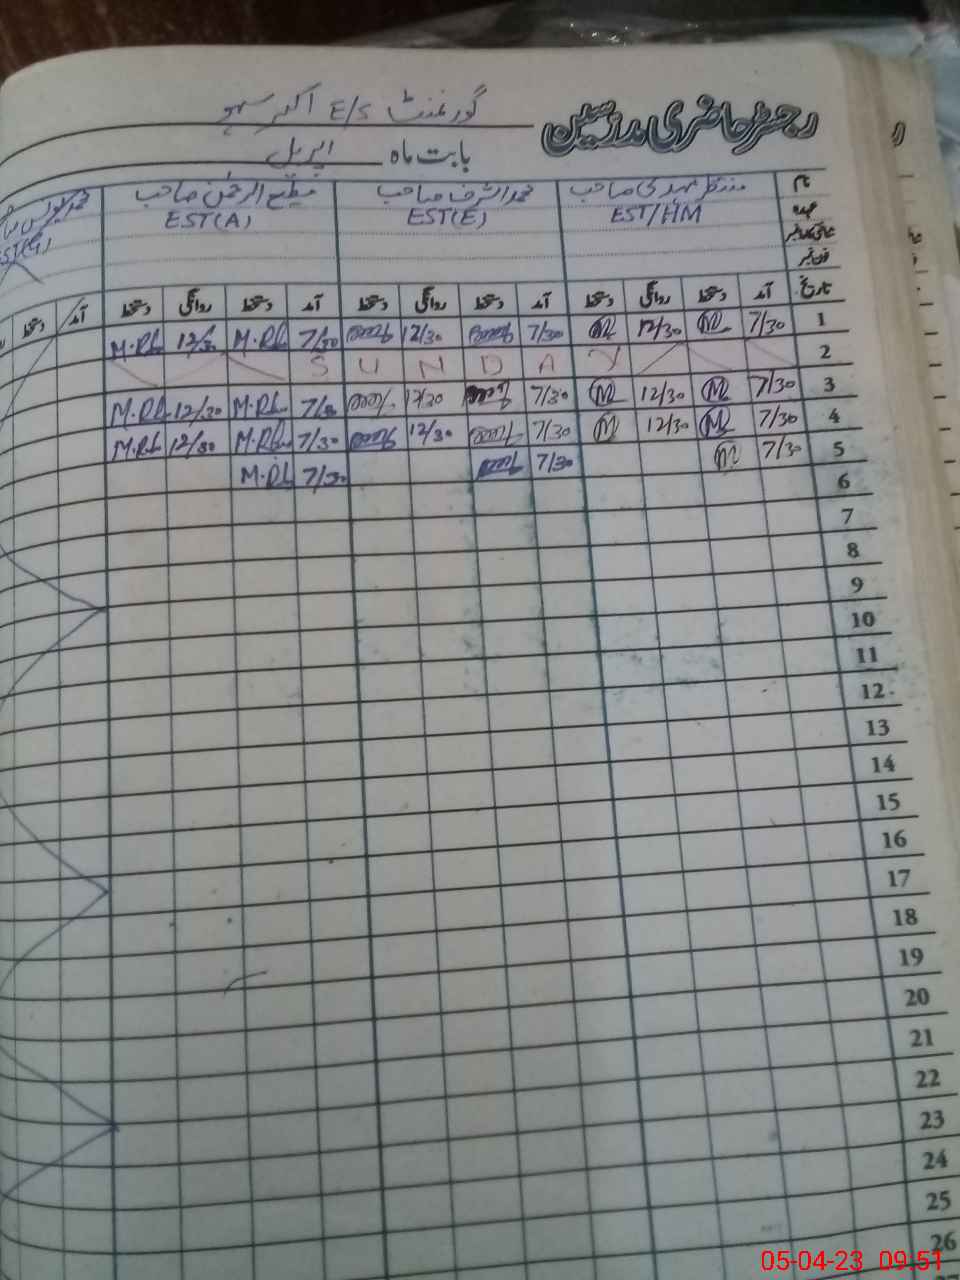 رجسٹر حاضری مدرسین
گورنمنٹ E/S
بابت ماہ اپریل
نام منتظر مہدی صاحب محمد اشرف صاحب مطیع الرحمٰن صاحب
عہدہ EST/HM EST(E) EST(A)
تاریخ آمد دستخط روانگی دستخط آمد دستخط روانگی دستخط آمد دستخط روانگی دستخط آمد دستخط
1 7/30 12/30 7/30 12/30 7/30 M.Rh 12/30 M.Rh
2 SUNDAY
3 7/30 12/30 7/30 12/30 7/30 M.Rh 12/30 M.Rh
4 7/30 12/30 7/30 12/30 7/30 M.Rh 12/30 M.Rh
5 7/30 7/30 7/30 M.Rh
6
7
8
9
10
11
12
13
14
15
16
17
18
19
20
21
22
23
24
25
26
05-04-23 09:51